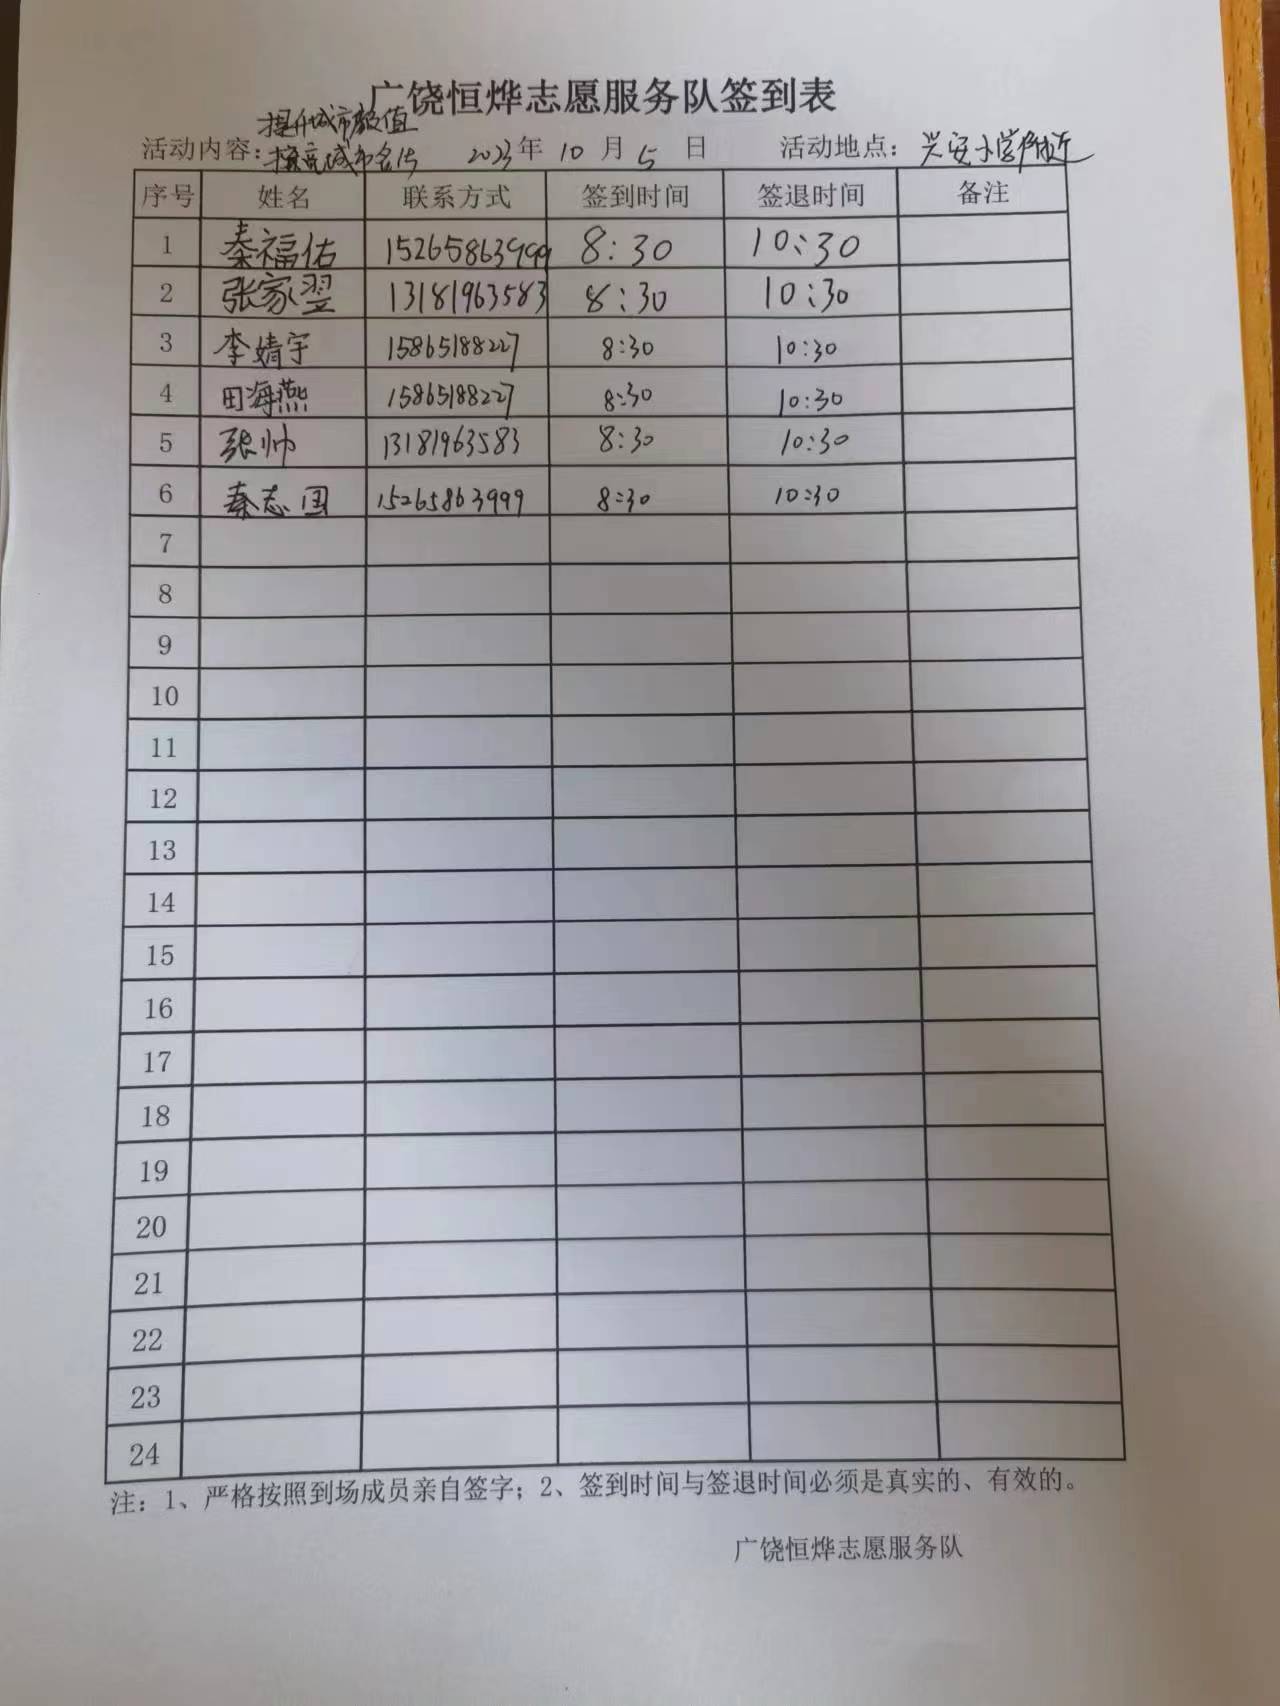 广饶恒烨志愿服务队签到表
提升城市颜值
活动内容： 擦亮城市名片 2023年 10 月 5 日 活动地点：兴安小学附近
序号 姓名 联系方式 签到时间 签退时间 备注
1 秦福佑 15265863999 8:30 10:30
2 张家翌 13181963583 8:30 10:30
3 李婧宇 15865188227 8:30 10:30
4 田海燕 15865188227 8:30 10:30
5 张帅 13181963583 8:30 10:30
6 秦志国 15265863999 8:30 10:30
7
8
9
10
11
12
13
14
15
16
17
18
19
20
21
22
23
24
注：1、严格按照到场成员亲自签字；2、签到时间与签退时间必须是真实的、有效的。
广饶恒烨志愿服务队